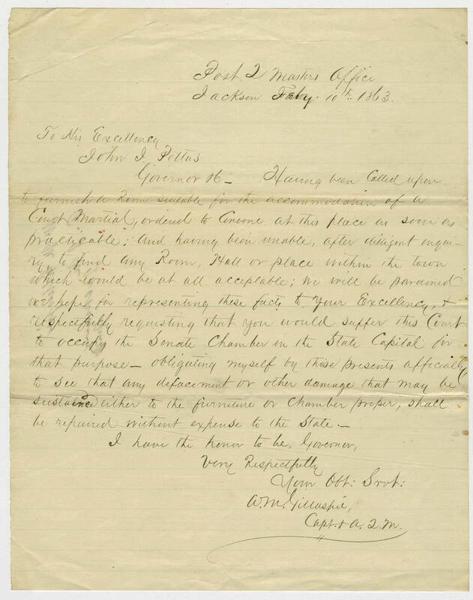 Post Q Masters Office
Jackson Feby. 10th 1863.
To His Excellency
John J Pettus
Governor &c - Having been Called upon
to furnish a Room suitable for the accommodation of a
Court Martial, ordered to Convene at this place as soon as
practicable; And having been unable, after diligent inqui-
ry to find any Room, Hall or place within the town
which would be at all acceptable; we will be pardoned
we hope for representing these facts to Your Excellency, &
respectfully requesting that you would suffer this Court
to occupy the Senate Chamber in the State Capitol for
that purpose - obligating myself by these presents officially
to see that any defacement or other damage that may be
sustained either to the furniture or Chamber proper, shall
be repaired without expense to the State -
I have the honor to be, Governor,
Very Respectfully
Your Obt: Svt:
A. M. Gillaspie,
Capt. & A. Q. M.